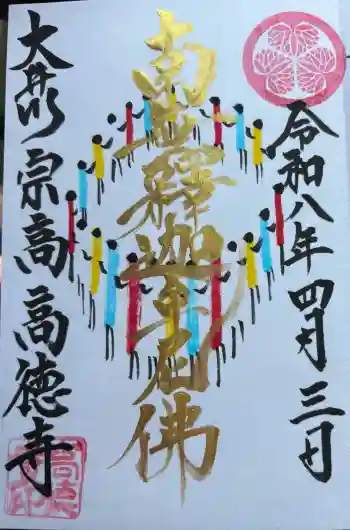 令和八年四月三日
南無釋迦牟尼佛
大井川宗高高徳寺